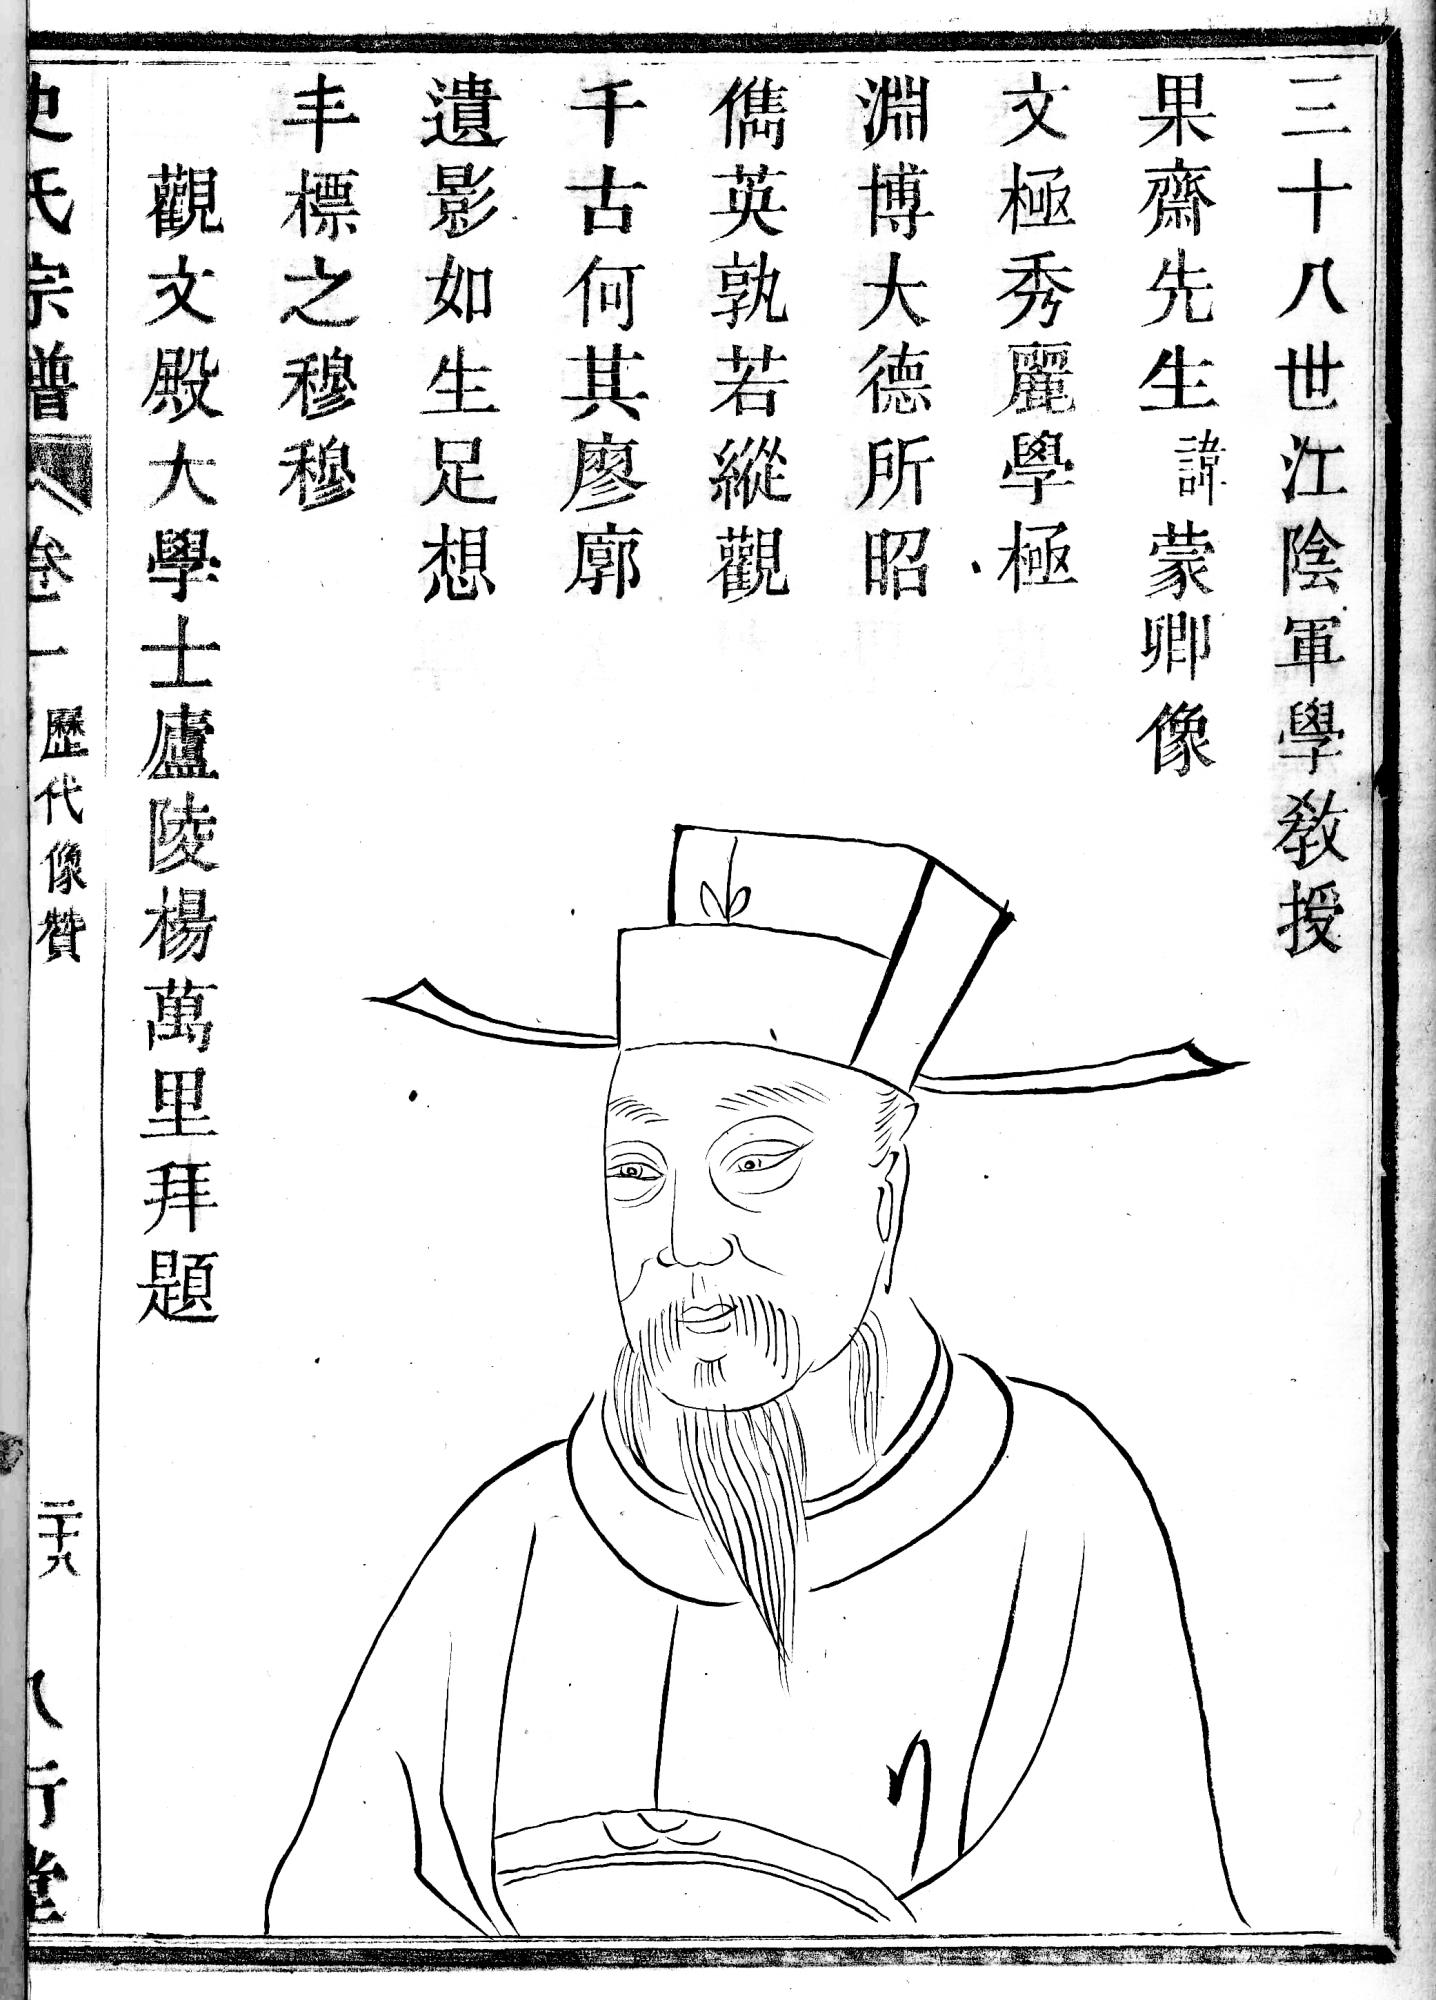 三十八世江陰軍學教授
果齋先生諱蒙卿像
文極秀麗學極
淵博大德所昭
儁英孰若縱觀
千古何其廖廓
遺影如生足想
丰標之穆穆
觀文殿大學士廬陵楊萬里拜題
史氏宗譜 卷一 歷代像贊 二十八 八行堂